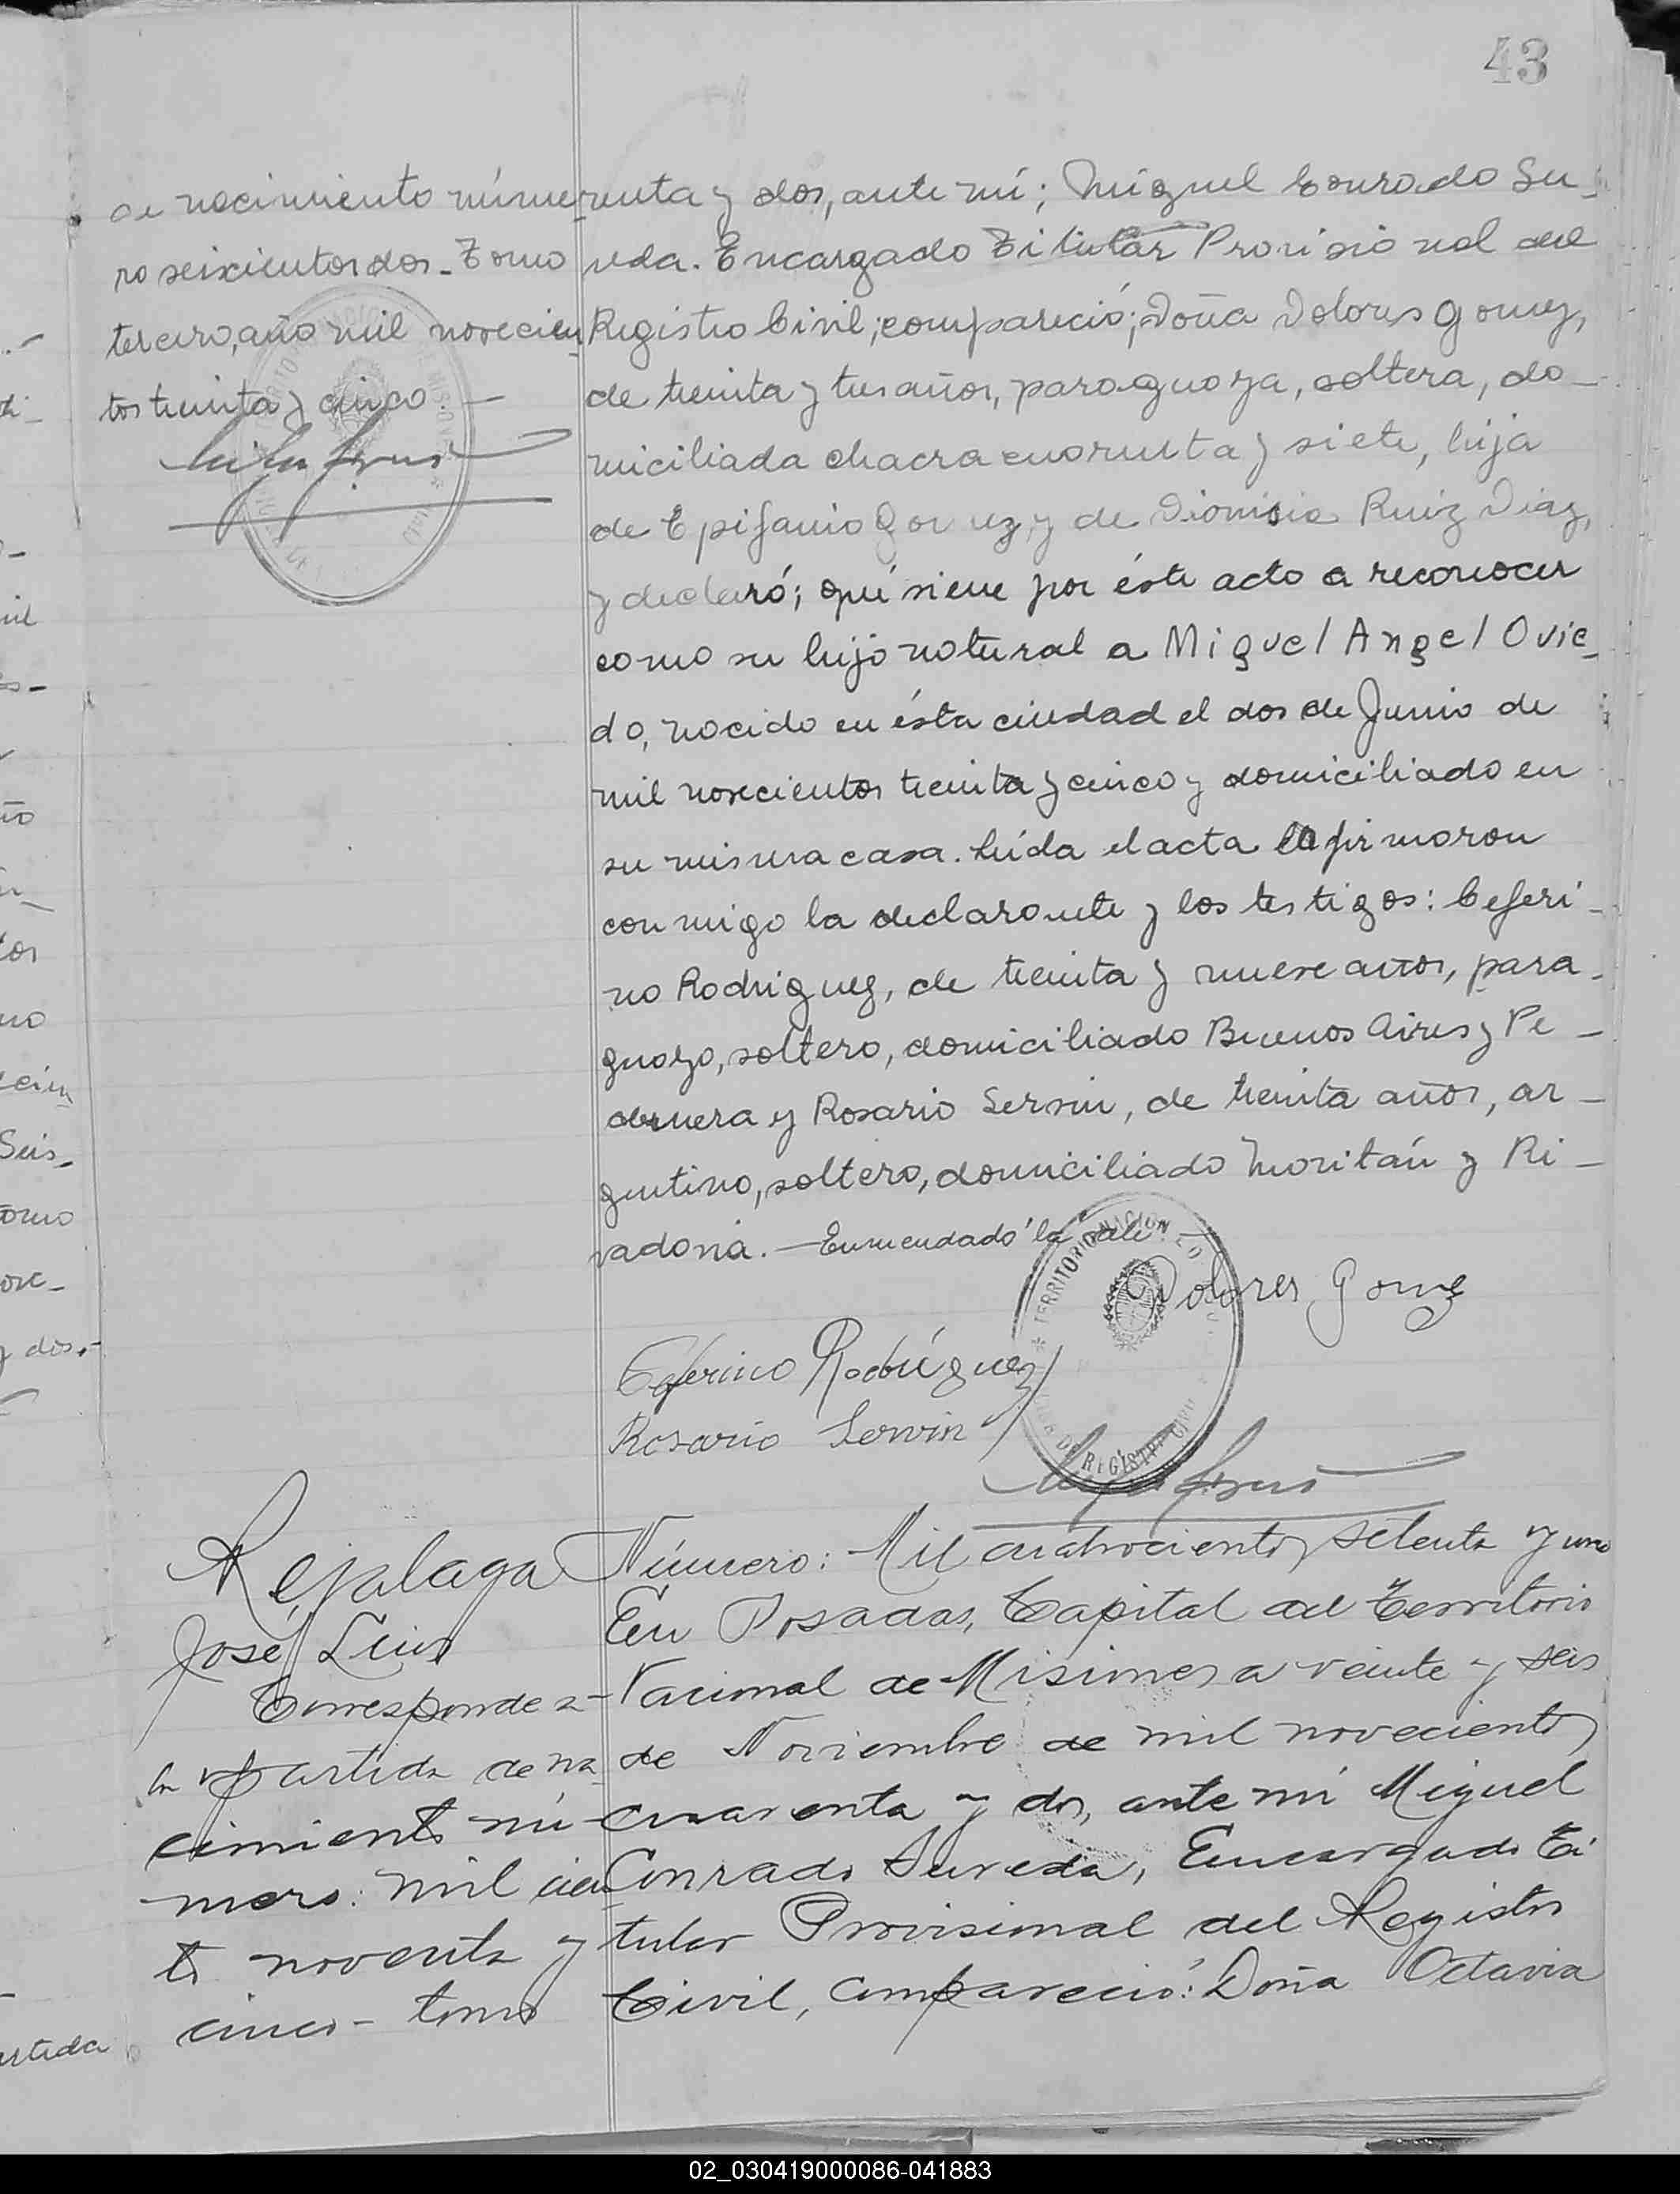 43
de nacimiento núme-
ro seixcientos dos - Tomo
tercero, año mil novecien
tos treinta y cinco. -
renta y dos, ante mí; Miguel Conrado Su-
reda. Encargado Titular Provisional del
Registro Civil; compareció; Doña Dolores Gomez,
de treinta y tres años, paraguaya, soltera, do-
miciliada chacra cuarenta y siete, hija
de Epifanio Gomez, y de Dionisia Ruiz Diaz,
y declaró; qué viene por éste acto a reconocer
como su hijo natural a Miguel Angel Ovie-
do, nacido en ésta ciudad el dos de Junio de
mil novecientos treinta y cinco y domiciliado en
su misma casa. Leída el acta la firmaron
conmigo la declarante y los testigos: Ceferi-
no Rodriguez, de treinta y nueve años, para-
guayo, soltero, domiciliado Buenos Aires y Pe-
dernera y Rosario Servin, de treinta años, ar-
gentino, soltero, domiciliado Moritán y Ri-
vadavia. - Enmendado "la" vale -
TERRITORIO NACION
REGISTRO CIVIL
Dolores Gomez
Ceferino Rodríguez
Rosario Servin
Rejalaga
José Luis
Corresponde a
la partida de na
cimiento nú-
mero: mil cien
to noventa y
cinco - tomo
Número: Mil cuatrocientos setenta y uno
En Posadas, Capital del Territorio
Nacional de Misiones a veinte y seis
de Noviembre de mil novecientos
cuarenta y dos, ante mí Miguel
Conrado Sureda, Encargado Ti-
tular Provisional del Registro
Civil, compareció: Doña Octavia
ño
tos
no
cien
Seis-
omo
y dos.-
artida
02_030419000086-041883